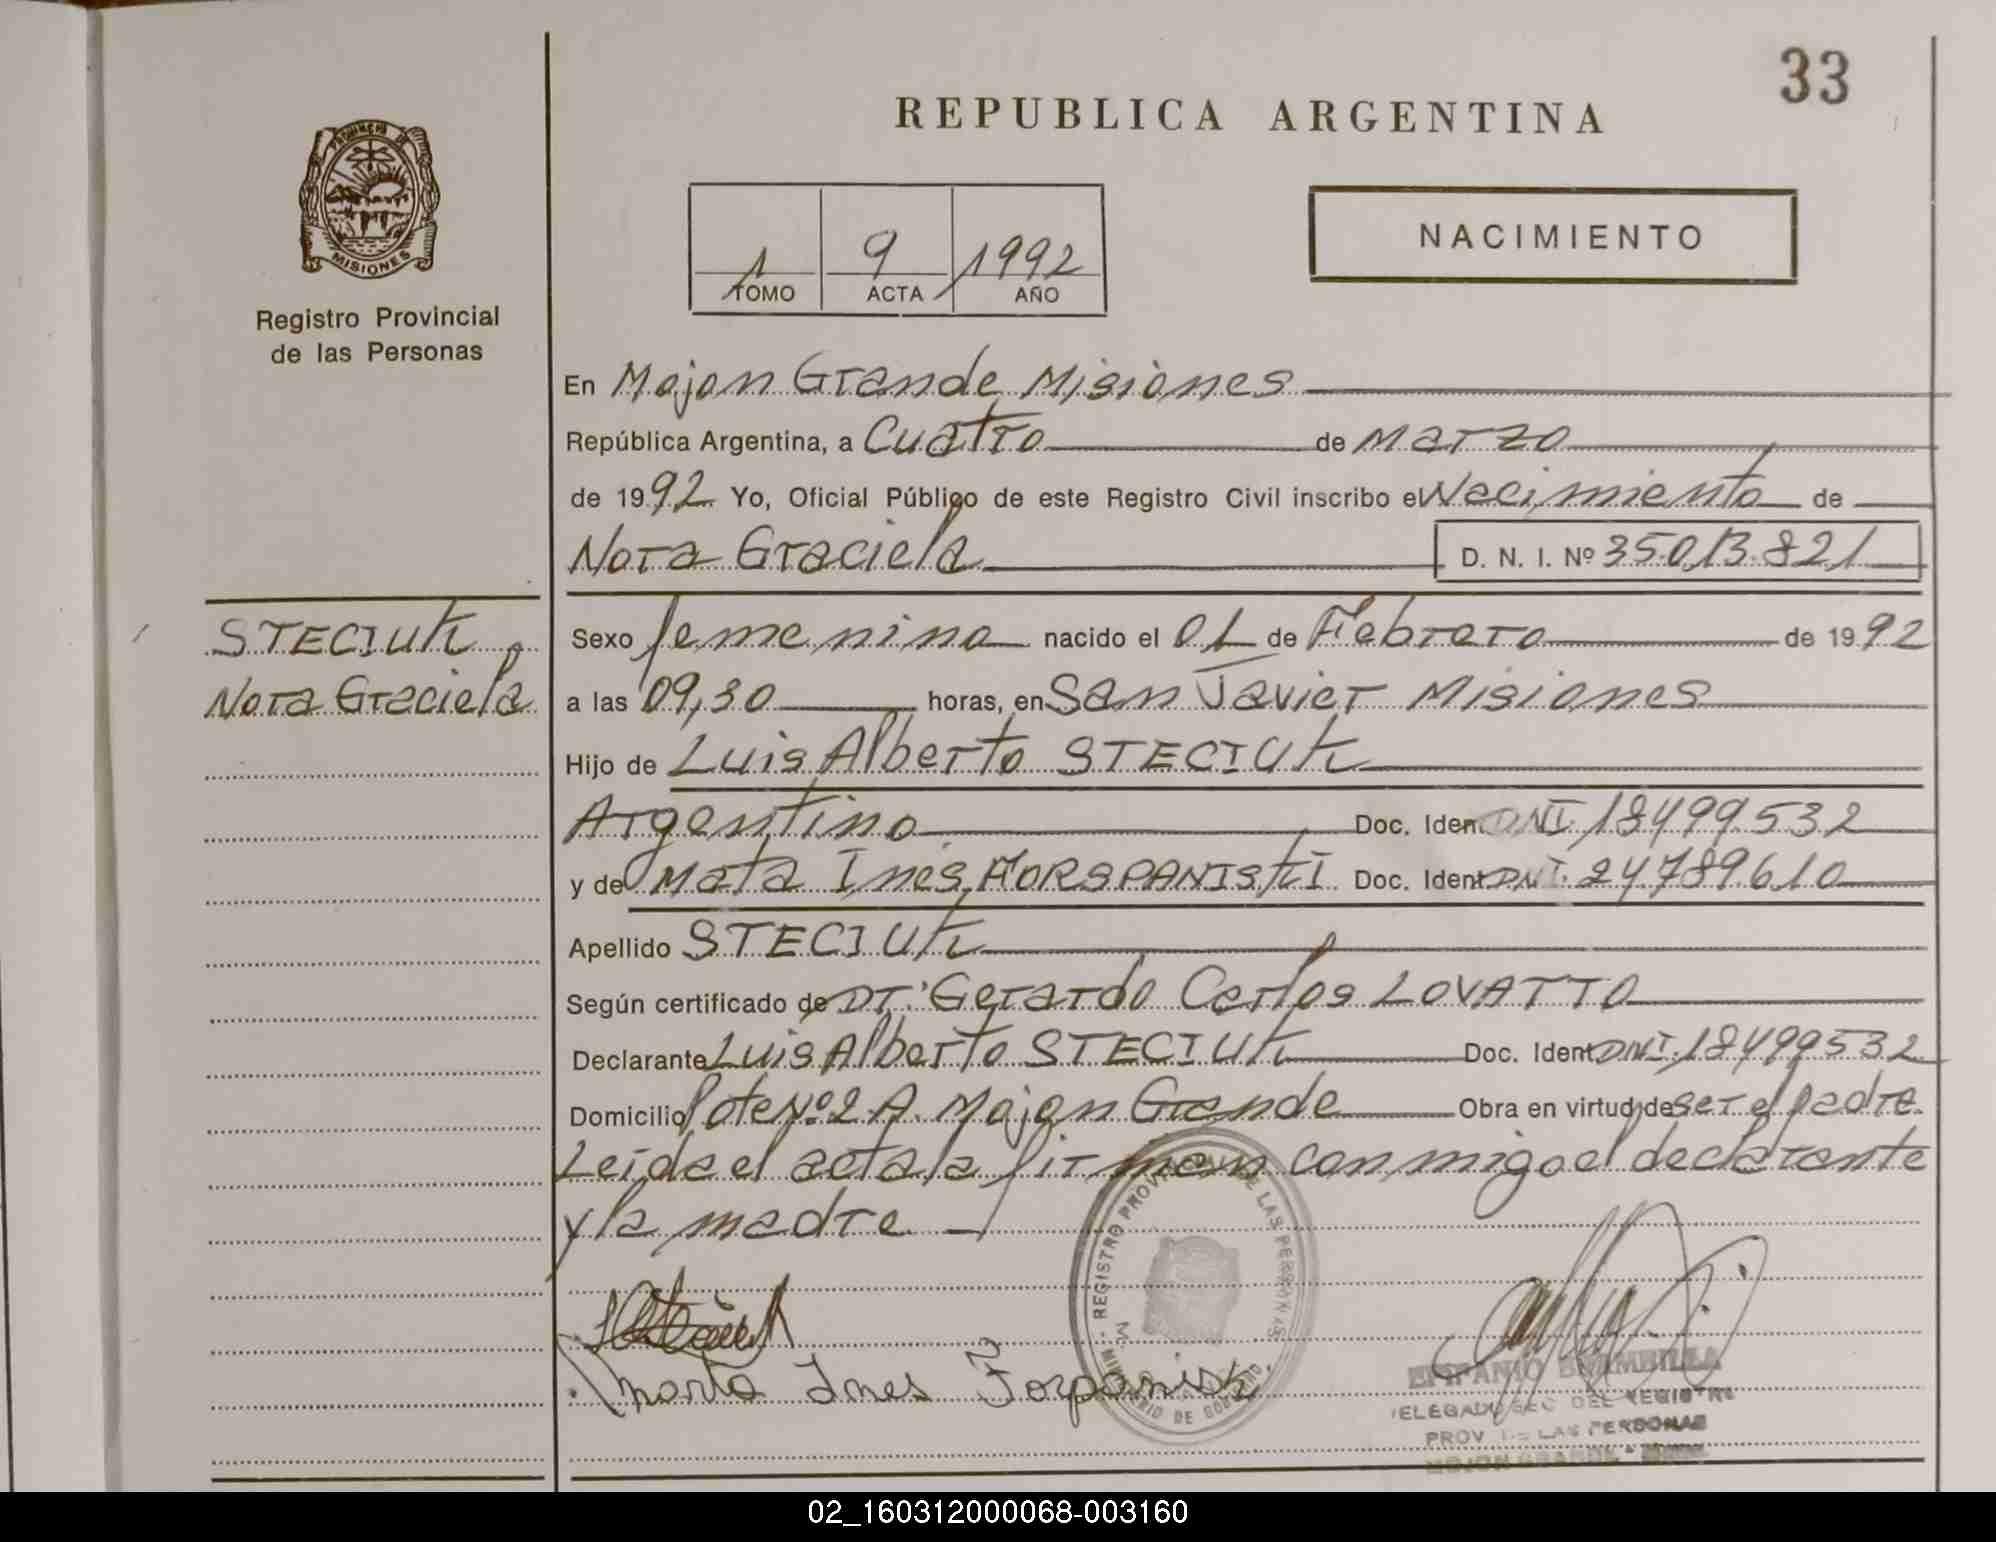 33
REPUBLICA ARGENTINA
PROVINCIA DE
MISIONES
Registro Provincial
de las Personas
1 9 1992
TOMO ACTA AÑO
NACIMIENTO
En Mojon Grande Misiones
República Argentina, a Cuatro de Marzo
de 1992 Yo, Oficial Público de este Registro Civil inscribo el Nacimiento de
Nora Graciela D. N. I. Nº 35.013.821
STECIUK
Nora Graciela
Sexo femenino nacido el 01 de Febrero de 1992
a las 09,30 horas, en San Javier Misiones
Hijo de Luis Alberto STECIUK
Argentino Doc. Ident DNI 18499532
y de Mata Ines FORSPANISKI Doc. Ident DNI. 24789610
Apellido STECIUK
Según certificado de Dr. Gerardo Carlos LOVATTO
Declarante Luis Alberto STECIUK Doc. Ident DNI. 18499532
Domicilio lote Nº 2 A. Mojon Grande Obra en virtud de ser el padre
Leida el acta la firman conmigo el declarante
y la madre
REGISTRO PROVINCIAL DE LAS PERSONAS
MINISTERIO DE GOBIERNO
Marta Ines
EPIFANIO BRAMBILLA
DEL REGISTRO
PROV DE LAS PERSONAS
MOJON GRANDE
02_160312000068-003160